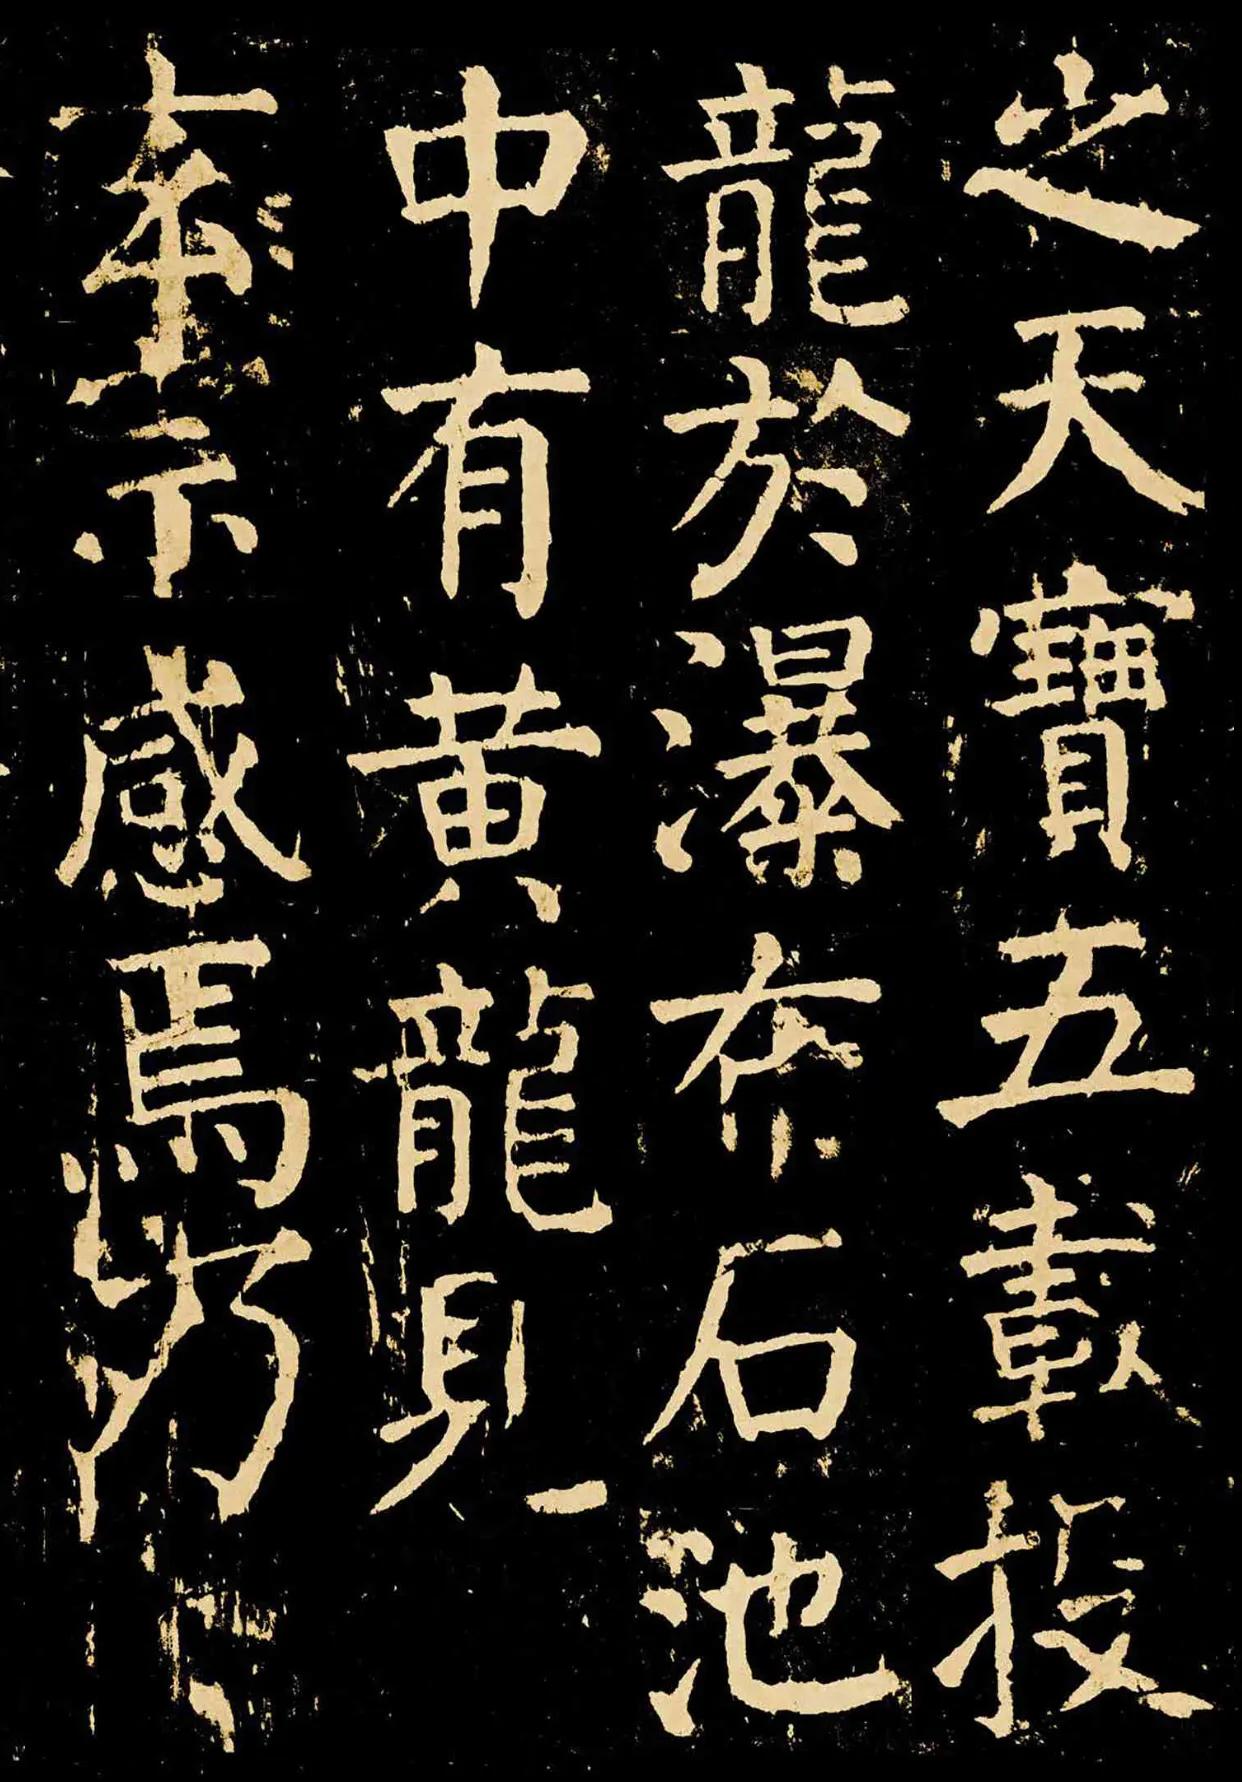 之天寶五載投
龍於瀑布石池
中有黄龍見
玄宗感焉乃